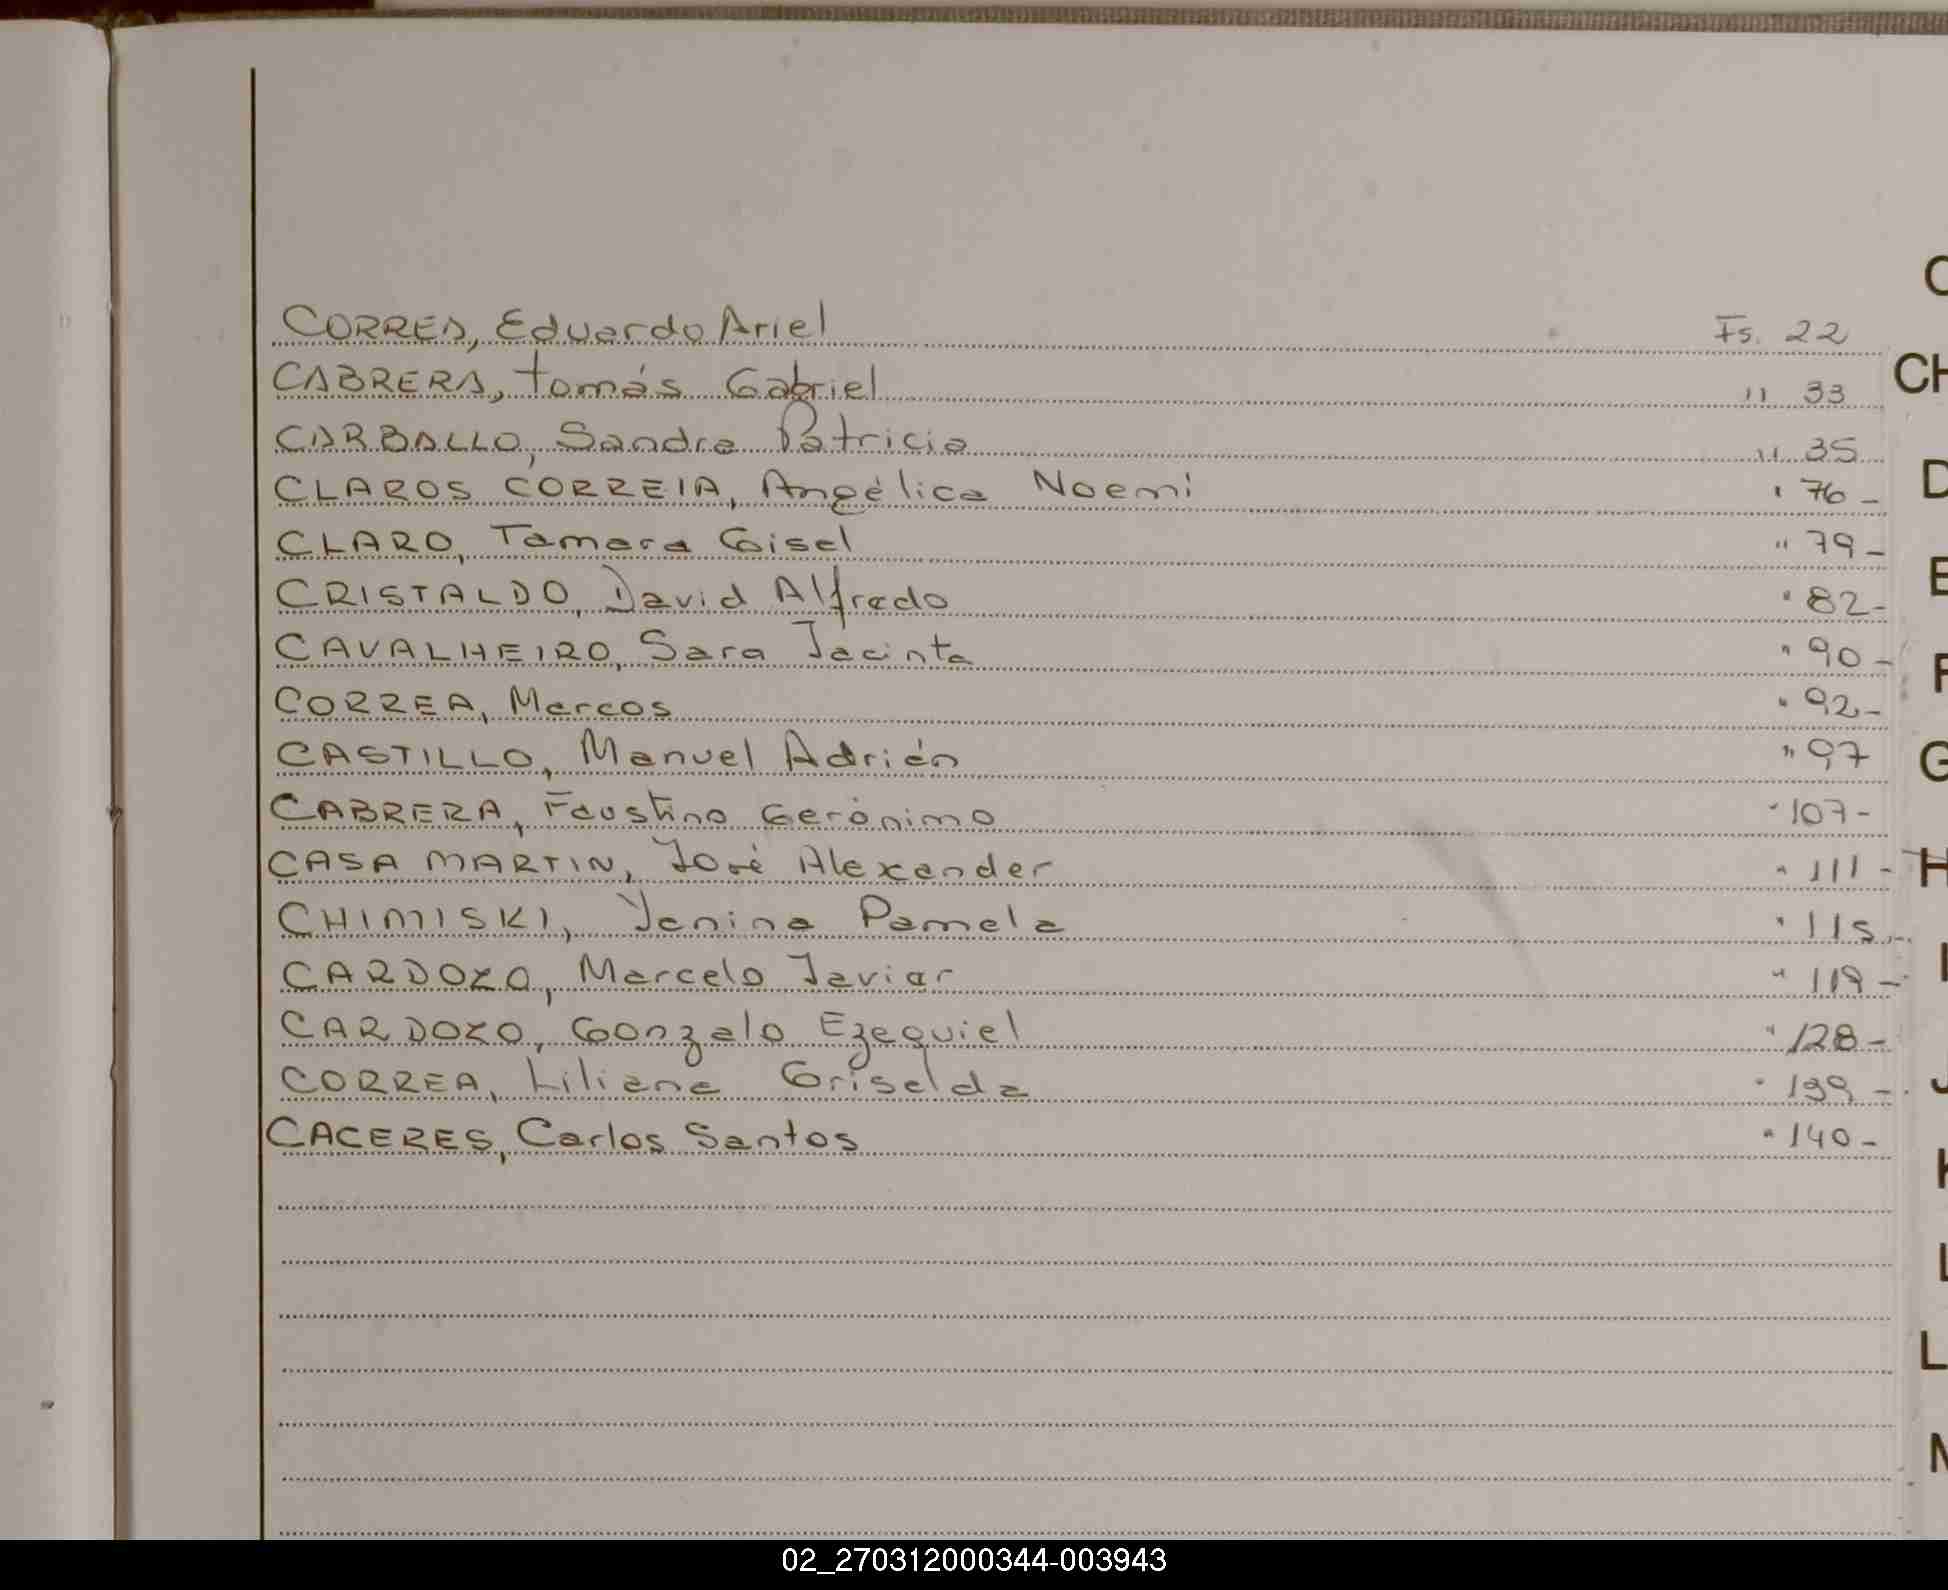 CORREA, Eduardo Ariel Fs. 22
CABRERA, Tomás Gabriel " 33
CARBALLO, Sandra Patricia " 35
CLAROS CORREIA, Angélica Noemi " 76-
CLARO, Tamara Gisel " 79-
CRISTALDO, David Alfredo " 82-
CAVALHEIRO, Sara Jacinta " 90-
CORREA, Marcos " 92-
CASTILLO, Manuel Adrián " 97
CABRERA, Faustino Gerónimo " 107-
CASA MARTIN, José Alexander " 111-
CHIMISKI, Yanina Pamela " 115-
CARDOZO, Marcelo Javier " 119-
CARDOZO, Gonzalo Ezequiel " 128-
CORREA, Liliana Griselda " 139-
CACERES, Carlos Santos " 140-
C
CH
D
E
F
G
H
I
J
K
L
L
M
02_270312000344-003943